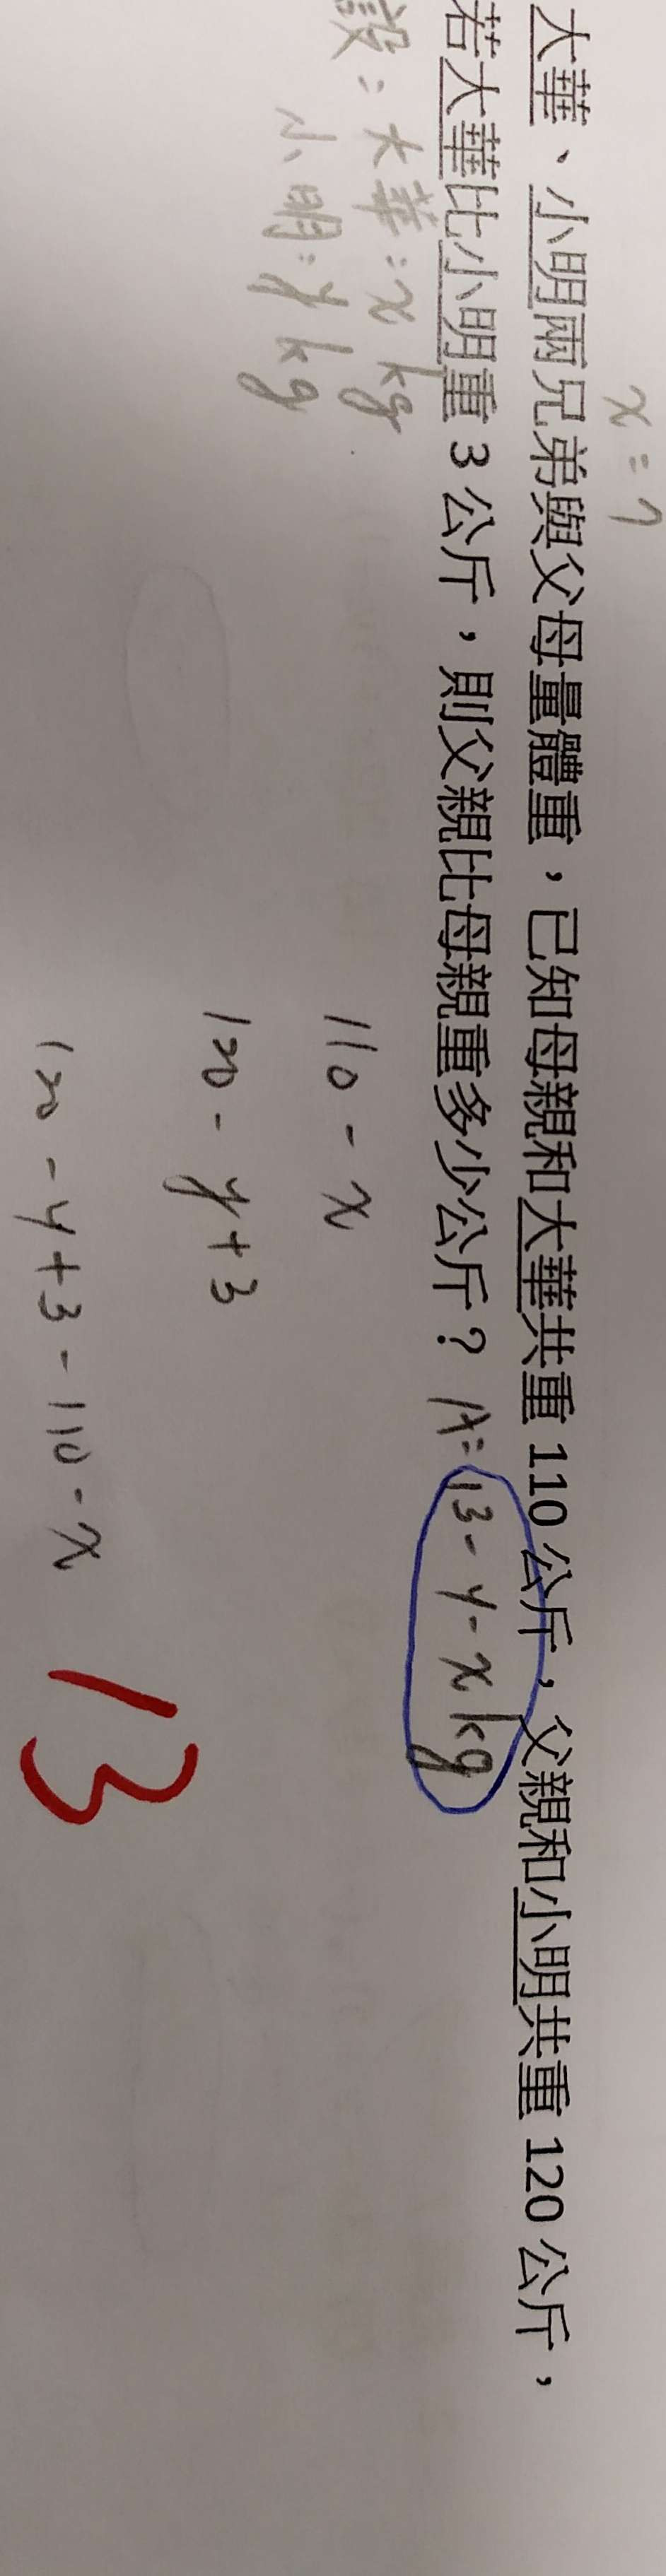 x = 7
大華、小明兩兄弟與父母量體重，已知母親和大華共重 110 公斤，父親和小明共重 120 公斤，
若大華比小明重 3 公斤，則父親比母親重多少公斤？ A= 13 - y - x kg
設：大華：x kg
小明：y kg
110 - x
120 - y + 3
120 - y + 3 - 110 - x
13